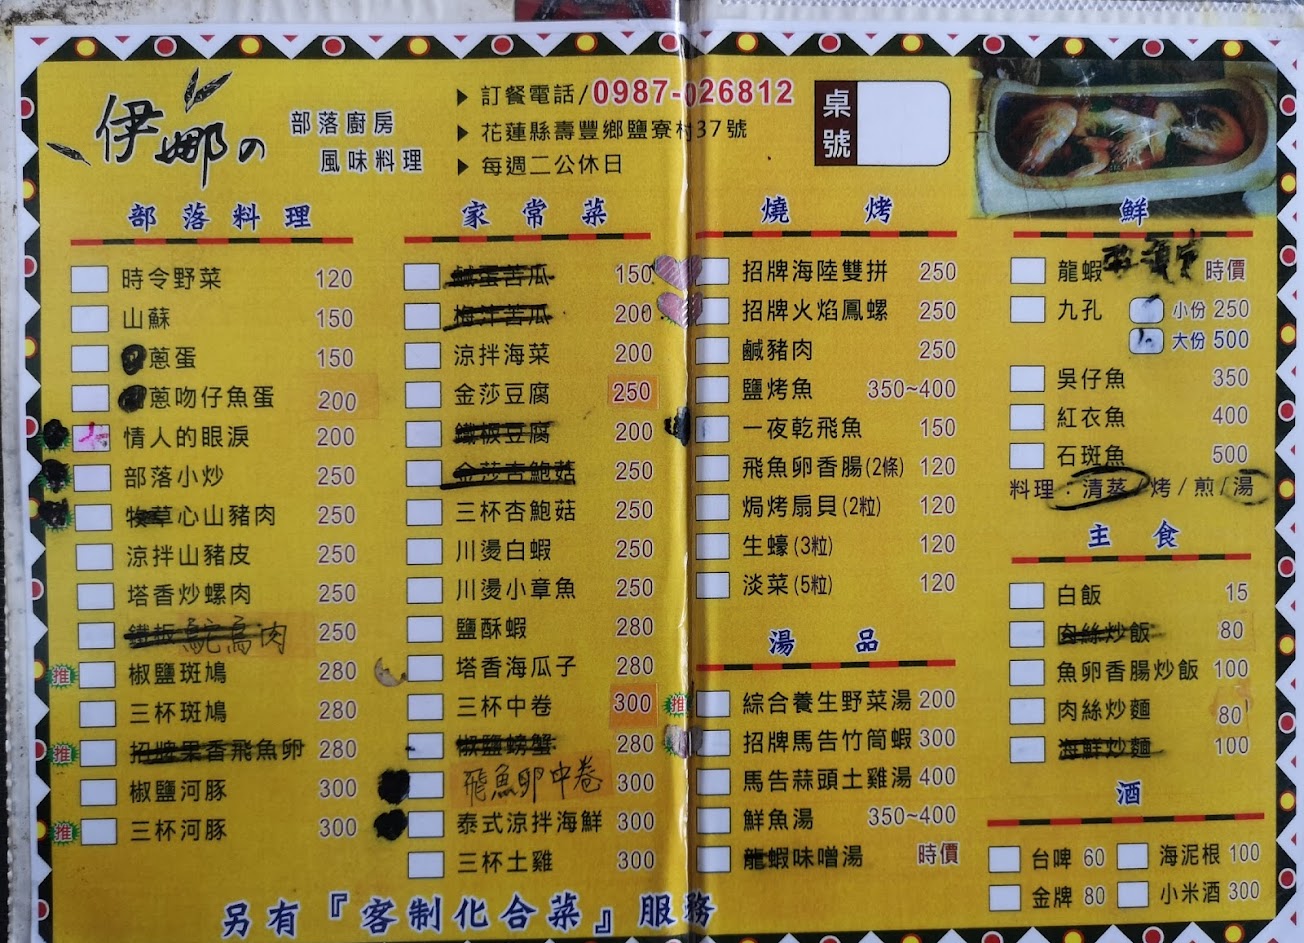 伊娜の
部落廚房
風味料理
訂餐電話/0987-026812
花蓮縣壽豐鄉鹽寮村37號
每週二公休日
桌號
部落料理
時令野菜 120
山蘇 150
蔥蛋 150
蔥吻仔魚蛋 200
情人的眼淚 200
部落小炒 250
牧草心山豬肉 250
涼拌山豬皮 250
塔香炒螺肉 250
鐵板鴕鳥肉 250
推 椒鹽斑鳩 280
三杯斑鳩 280
推 招牌果香飛魚卵 280
椒鹽河豚 300
推 三杯河豚 300
家常菜
鹹蛋苦瓜 150
梅汁苦瓜 200
涼拌海菜 200
金莎豆腐 250
鐵板豆腐 200
金莎杏鮑菇 250
三杯杏鮑菇 250
川燙白蝦 250
川燙小章魚 250
鹽酥蝦 280
塔香海瓜子 280
三杯中卷 300
椒鹽螃蟹 280
飛魚卵中卷 300
泰式涼拌海鮮 300
三杯土雞 300
燒烤
招牌海陸雙拼 250
招牌火焰鳳螺 250
鹹豬肉 250
鹽烤魚 350~400
一夜乾飛魚 150
飛魚卵香腸(2條) 120
焗烤扇貝(2粒) 120
生蠔(3粒) 120
淡菜(5粒) 120
湯品
推 綜合養生野菜湯 200
招牌馬告竹筒蝦 300
馬告蒜頭土雞湯 400
鮮魚湯 350~400
龍蝦味噌湯 時價
鮮
龍蝦 時價
九孔 小份 250
大份 500
吳仔魚 350
紅衣魚 400
石斑魚 500
料理：清蒸/烤/煎/湯
主食
白飯 15
肉絲炒飯 80
魚卵香腸炒飯 100
肉絲炒麵 80
海鮮炒麵 100
酒
台啤 60 海泥根 100
金牌 80 小米酒 300
另有『客制化合菜』服務